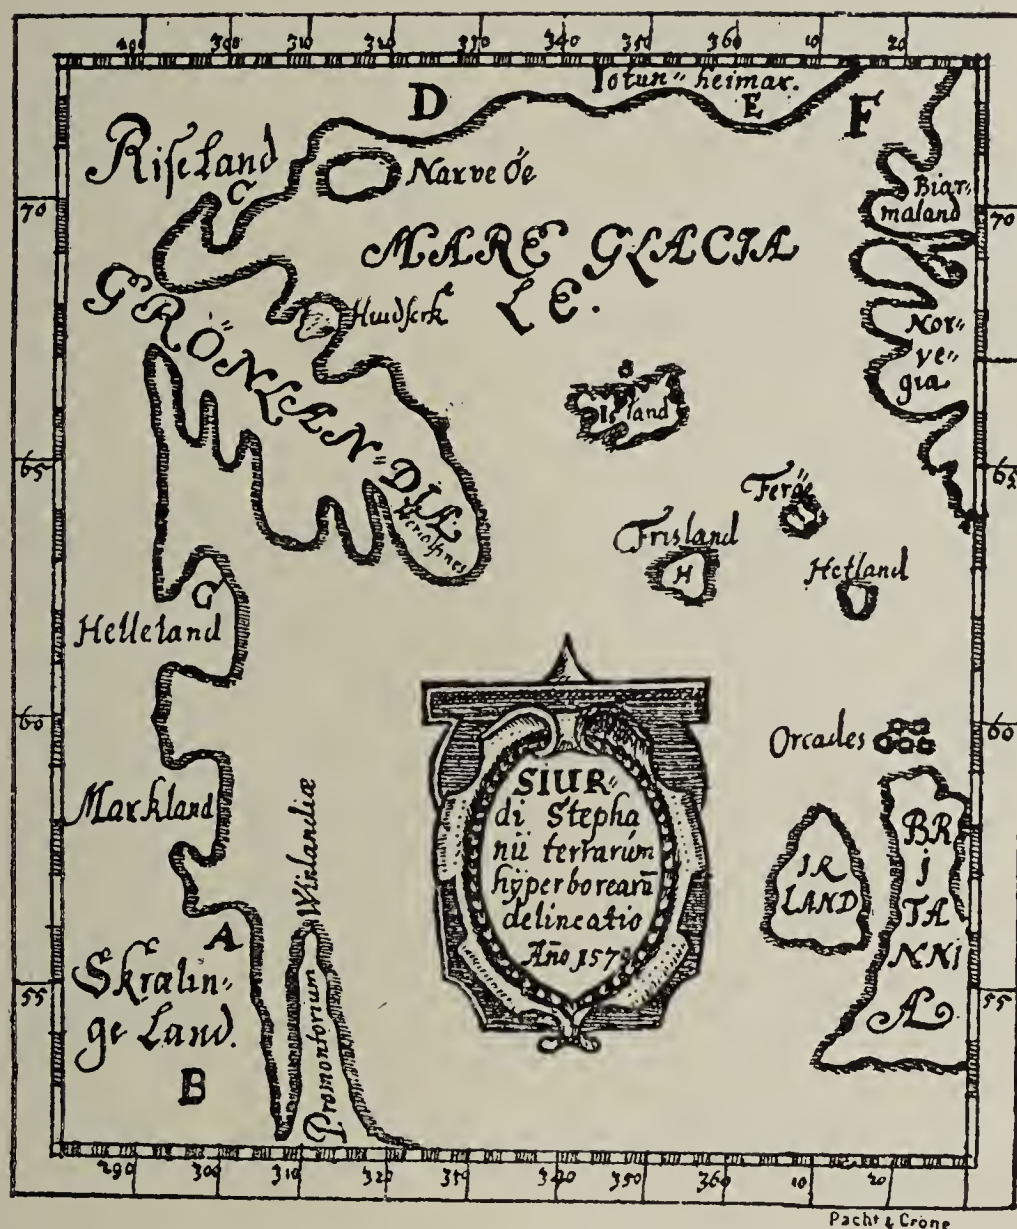 290 300 310 320 330 340 350 360 10 20
Iotun=heimar.
D
E
F
Riseland
C
Narve Öe
Biar=
maland
70
70
MARE GLACIA
LE.
GRÖNLAN=DIA
Huidserk
Nor=
ve=
gia
B
Island
65
65
Feröe
Frisland
H
Hetland
Heriolfsnes
G
Helleland
60
60
Orcades
Markland
Promontorium Winlandiæ
SIUR=
di Stepha
nii terrarum
hÿperborearū
delineatio
Año 157
IR
LAND
BR
i
TA
NNi
Æ
A
Skrælin=
ge Land.
55
55
B
290 300 310 320 330 340 350 360 10 20
Pacht & Crone